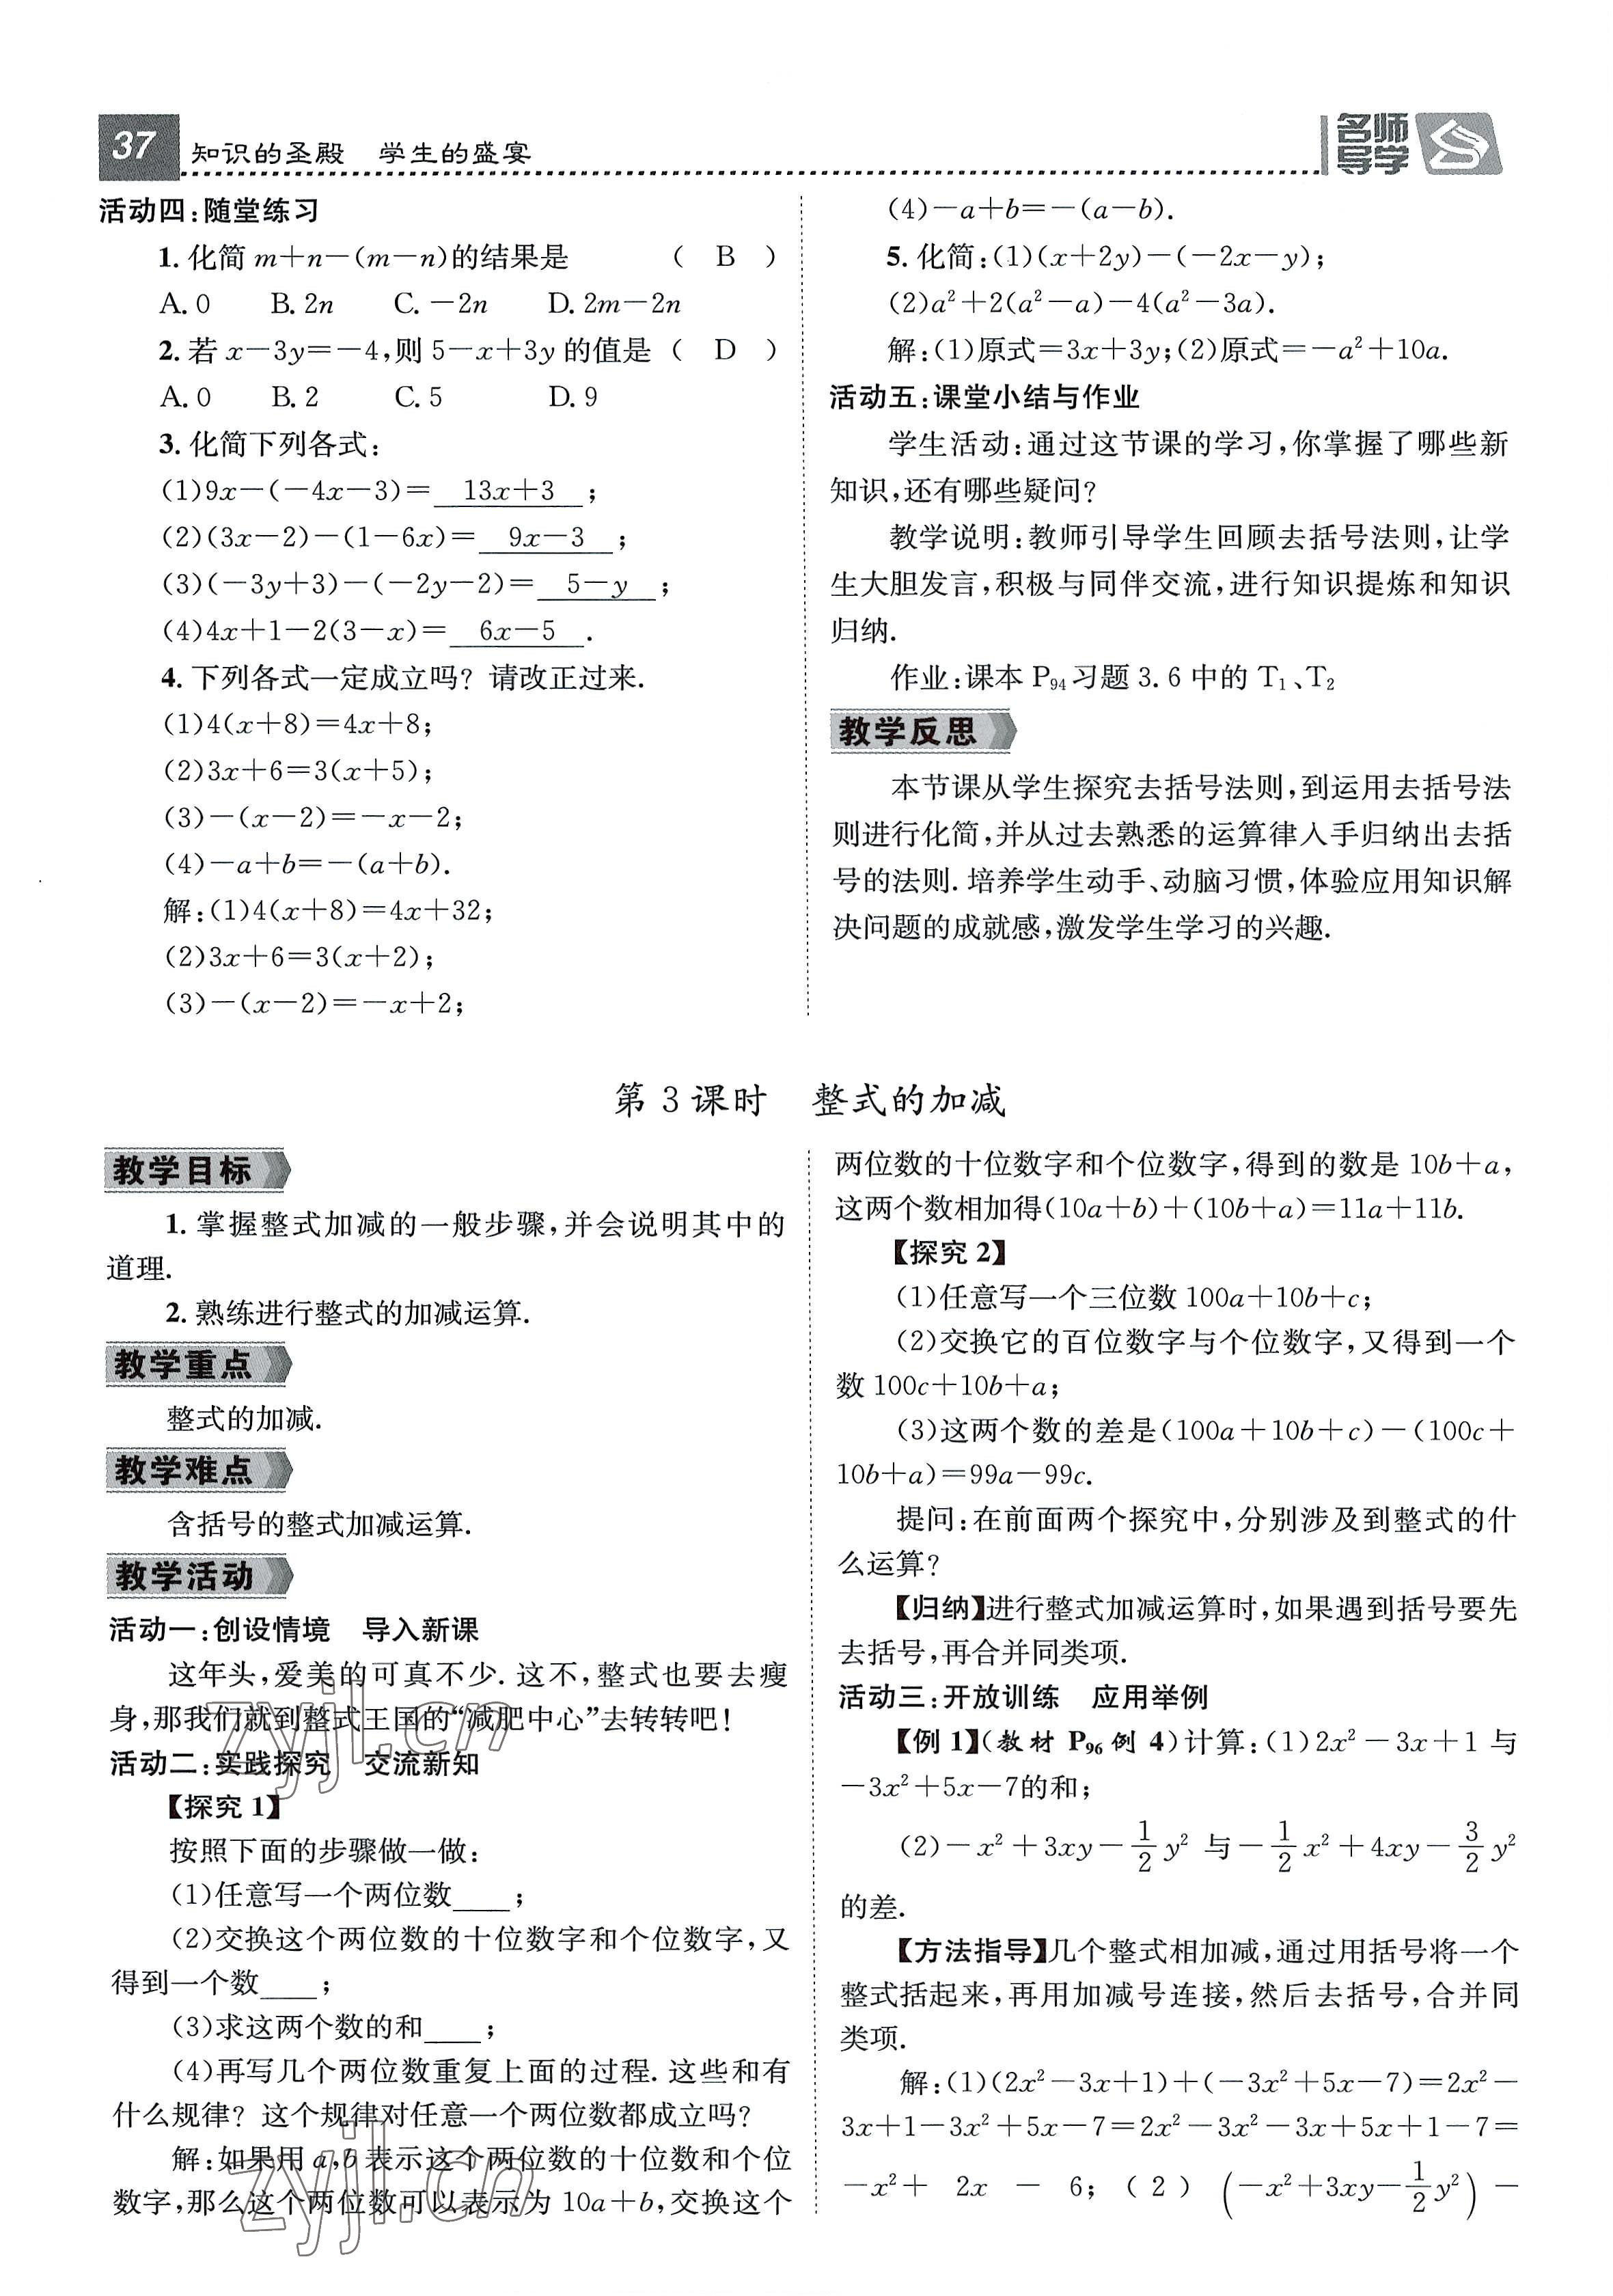 37 知识的圣殿 学生的盛宴
名师导学
活动四:随堂练习
1. 化简 m+n-(m-n)的结果是 ( B )
A. 0 B. 2n C. -2n D. 2m-2n
2. 若 x-3y=-4,则 5-x+3y 的值是 ( D )
A. 0 B. 2 C. 5 D. 9
3. 化简下列各式:
(1)9x-(-4x-3)= 13x+3 ;
(2)(3x-2)-(1-6x)= 9x-3 ;
(3)(-3y+3)-(-2y-2)= 5-y ;
(4)4x+1-2(3-x)= 6x-5 .
4. 下列各式一定成立吗? 请改正过来.
(1)4(x+8)=4x+8;
(2)3x+6=3(x+5);
(3)-(x-2)=-x-2;
(4)-a+b=-(a+b).
解:(1)4(x+8)=4x+32;
(2)3x+6=3(x+2);
(3)-(x-2)=-x+2;
(4)-a+b=-(a-b).
5. 化简:(1)(x+2y)-(-2x-y);
(2)a²+2(a²-a)-4(a²-3a).
解:(1)原式=3x+3y;(2)原式=-a²+10a.
活动五:课堂小结与作业
学生活动:通过这节课的学习,你掌握了哪些新
知识,还有哪些疑问?
教学说明:教师引导学生回顾去括号法则,让学
生大胆发言,积极与同伴交流,进行知识提炼和知识
归纳.
作业:课本 P₉₄ 习题 3.6 中的 T₁、T₂
教学反思
本节课从学生探究去括号法则,到运用去括号法
则进行化简,并从过去熟悉的运算律入手归纳出去括
号的法则. 培养学生动手、动脑习惯,体验应用知识解
决问题的成就感,激发学生学习的兴趣.
第 3 课时 整式的加减
教学目标
1. 掌握整式加减的一般步骤,并会说明其中的
道理.
2. 熟练进行整式的加减运算.
教学重点
整式的加减.
教学难点
含括号的整式加减运算.
教学活动
活动一:创设情境 导入新课
这年头,爱美的可真不少. 这不,整式也要去瘦
身,那我们就到整式王国的“减肥中心”去转转吧!
活动二:实践探究 交流新知
【探究 1】
按照下面的步骤做一做:
(1)任意写一个两位数____;
(2)交换这个两位数的十位数字和个位数字,又
得到一个数____;
(3)求这两个数的和____;
(4)再写几个两位数重复上面的过程. 这些和有
什么规律? 这个规律对任意一个两位数都成立吗?
解:如果用 a,b 表示这个两位数的十位数和个位
数字,那么这个两位数可以表示为 10a+b,交换这个
两位数的十位数字和个位数字,得到的数是 10b+a,
这两个数相加得(10a+b)+(10b+a)=11a+11b.
【探究 2】
(1)任意写一个三位数 100a+10b+c;
(2)交换它的百位数字与个位数字,又得到一个
数 100c+10b+a;
(3)这两个数的差是(100a+10b+c)-(100c+
10b+a)=99a-99c.
提问:在前面两个探究中,分别涉及到整式的什
么运算?
【归纳】进行整式加减运算时,如果遇到括号要先
去括号,再合并同类项.
活动三:开放训练 应用举例
【例 1】(教材 P₉₆ 例 4)计算:(1)2x²-3x+1 与
-3x²+5x-7的和;
(2)-x²+3xy-1/2 y² 与-1/2 x²+4xy-3/2 y²
的差.
【方法指导】几个整式相加减,通过用括号将一个
整式括起来,再用加减号连接,然后去括号,合并同
类项.
解:(1)(2x²-3x+1)+(-3x²+5x-7)=2x²-
3x+1-3x²+5x-7=2x²-3x²-3x+5x+1-7=
-x²+ 2x - 6;(2) (-x²+3xy-1/2 y²) -
zyjl.cn
zyjl.cn